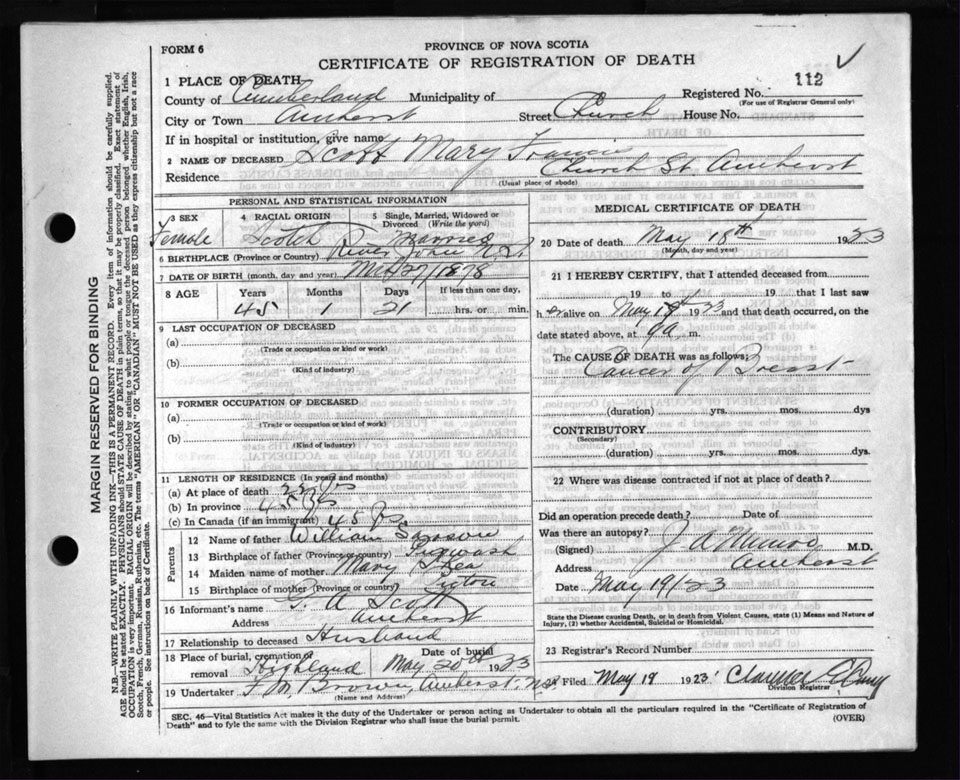 FORM 6
PROVINCE OF NOVA SCOTIA
CERTIFICATE OF REGISTRATION OF DEATH
1 PLACE OF DEATH
112
Registered No.
(For use of Registrar General only)
County of Cumberland Municipality of
City or Town Amherst Street Church House No.
If in hospital or institution, give name
2 NAME OF DECEASED Scott Mary
Residence Church St. Amherst
(Usual place of abode)
PERSONAL AND STATISTICAL INFORMATION
3 SEX Female
4 RACIAL ORIGIN Scotch
5 Single, Married, Widowed or Divorced (Write the word) Married
6 BIRTHPLACE (Province or Country) River John N.S.
7 DATE OF BIRTH (month, day and year) 27/1878
8 AGE Years Months Days If less than one day,
45 1 21 hrs. or min.
9 LAST OCCUPATION OF DECEASED
(a)
(Trade or occupation or kind of work)
(b)
(Kind of industry)
10 FORMER OCCUPATION OF DECEASED
(a)
(Trade or occupation or kind of work)
(b)
(Kind of industry)
11 LENGTH OF RESIDENCE (In years and months)
(a) At place of death yrs
(b) In province 45 yrs
(c) In Canada (if an immigrant) 45 yrs
Parents
12 Name of father William
13 Birthplace of father (Province or country) Pugwash
14 Maiden name of mother Mary
15 Birthplace of mother (Province or country) Pictou
16 Informant's name A Scott
Address Amherst
17 Relationship to deceased Husband
18 Place of burial, cremation or removal Highland
Date of burial May 20th 1923
19 Undertaker Brown, Amherst, N.S.
(Name and Address)
MEDICAL CERTIFICATE OF DEATH
20 Date of death May 18th 1923
(Month, day and year)
21 I HEREBY CERTIFY, that I attended deceased from
19 to 19 that I last saw
h er alive on May 1923 and that death occurred, on
date stated above, at 9 a. m.
The CAUSE OF DEATH was as follows:
Cancer of Breast
(duration) yrs. mos. dys
CONTRIBUTORY
(Secondary)
(duration) yrs. mos. dys.
22 Where was disease contracted if not at place of death?
Did an operation precede death? Date of
Was there an autopsy?
(Signed) J A Munro M.D.
Address Amherst
Date May 19/23
State the Disease causing Death, or in death from Violent Causes, state (1) Means and Nature of Injury, (2) whether Accidental, Suicidal or Homicidal.
23 Registrar's Record Number
Filed May 19 1923
Division Registrar
SEC. 46—Vital Statistics Act makes it the duty of the Undertaker or person acting as Undertaker to obtain all the particulars required in the "Certificate of Registration of
Death" and to fyle the same with the Division Registrar who shall issue the burial permit.
(OVER)
MARGIN RESERVED FOR BINDING
N.B.—WRITE PLAINLY WITH UNFADING INK—THIS IS A PERMANENT RECORD. Every item of information should be carefully supplied.
AGE should be stated EXACTLY. PHYSICIANS should STATE CAUSE OF DEATH in plain terms, so that it may be properly classified. Exact statement of
OCCUPATION is very important. RACIAL ORIGIN will be described by stating to what people or tongue the deceased person belonged whether English, Irish,
Scotch, French, German, Russian, Ruthenian, etc. The terms "AMERICAN" OR "CANADIAN" MUST NOT BE USED as they express citizenship but not a race
or people. See instructions on back of Certificate.